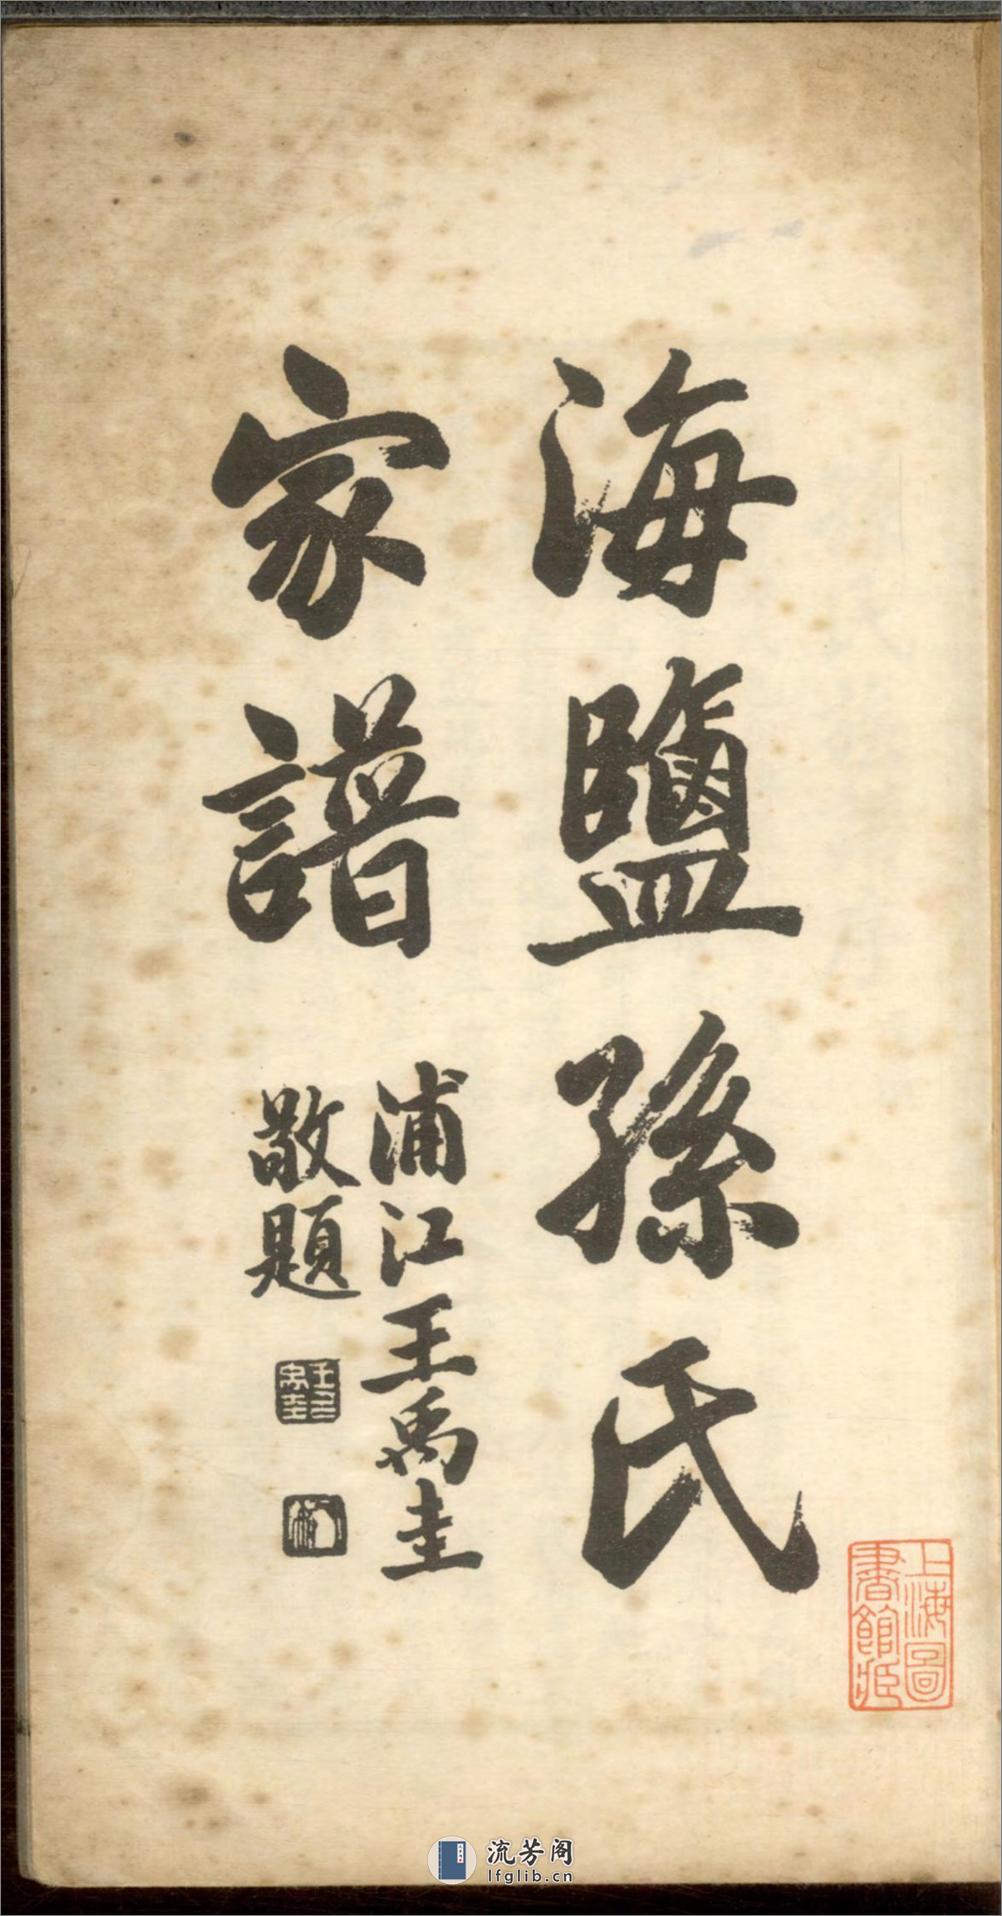 海鹽孫氏
家譜
浦江王禹圭
敬題
上海圖
書館藏
流芳阁
lfglib.cn